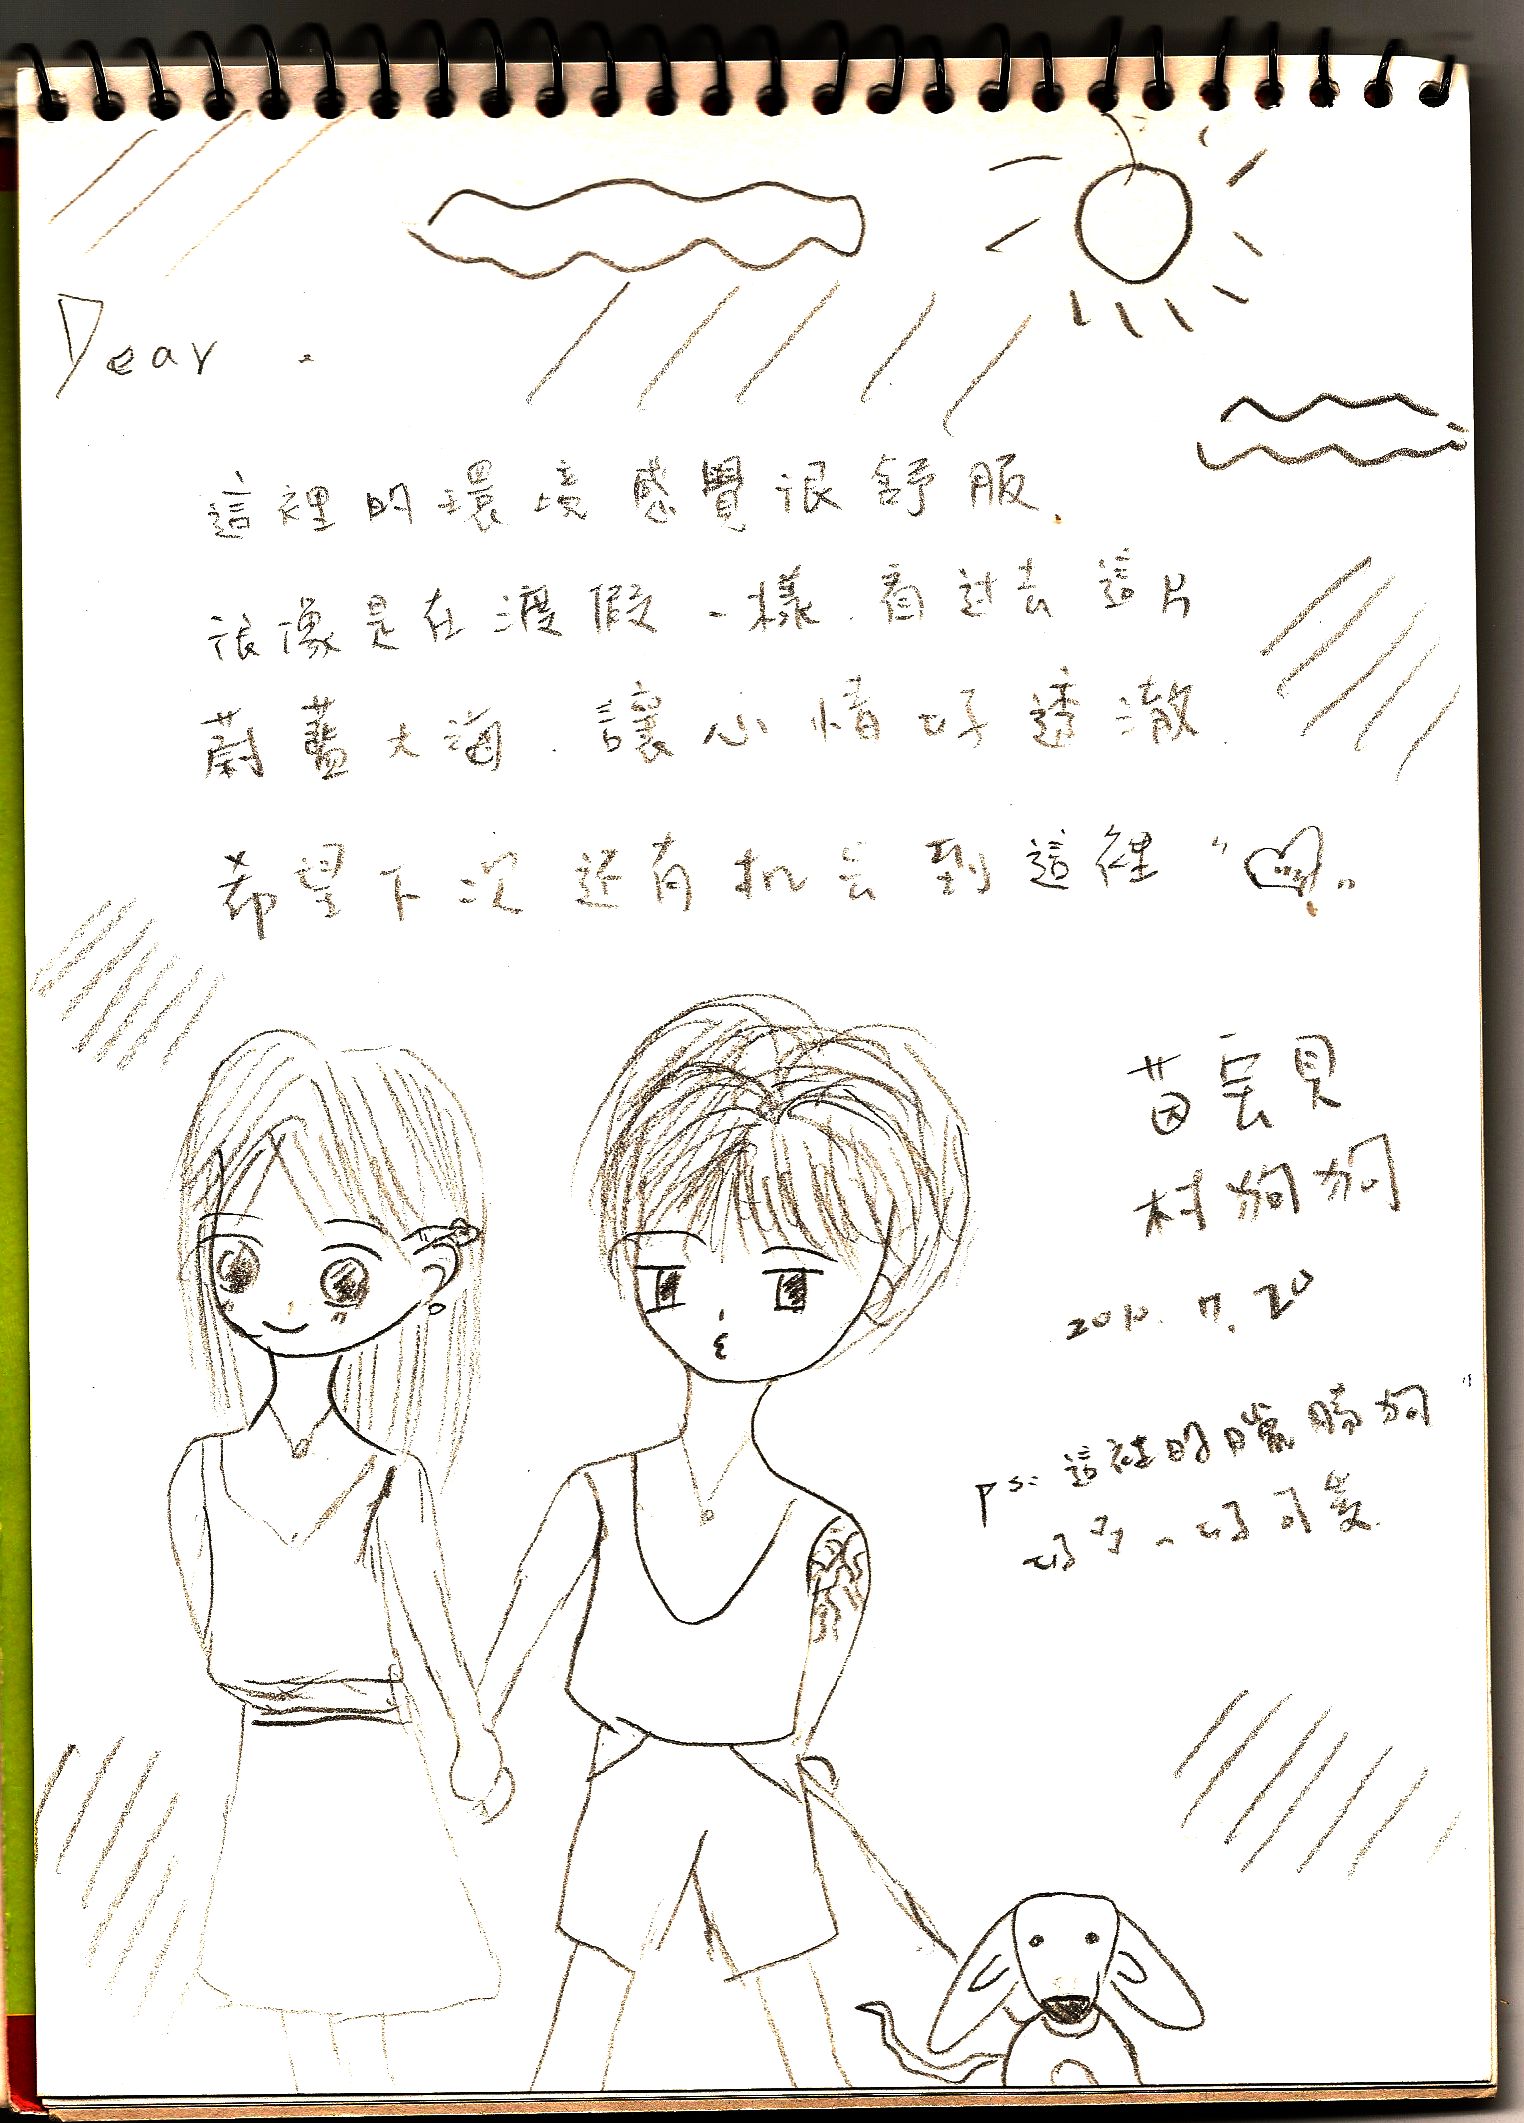 Dear .
這裡的環境感覺很舒服.
很像是在渡假一樣.看過去這片
蔚藍大海.讓心情好透澈.
希望下次还有机会到這裡"
苗宝貝
村狗狗
2010.7.20
ps:這裡的臘腸狗"
好乖~好可愛.